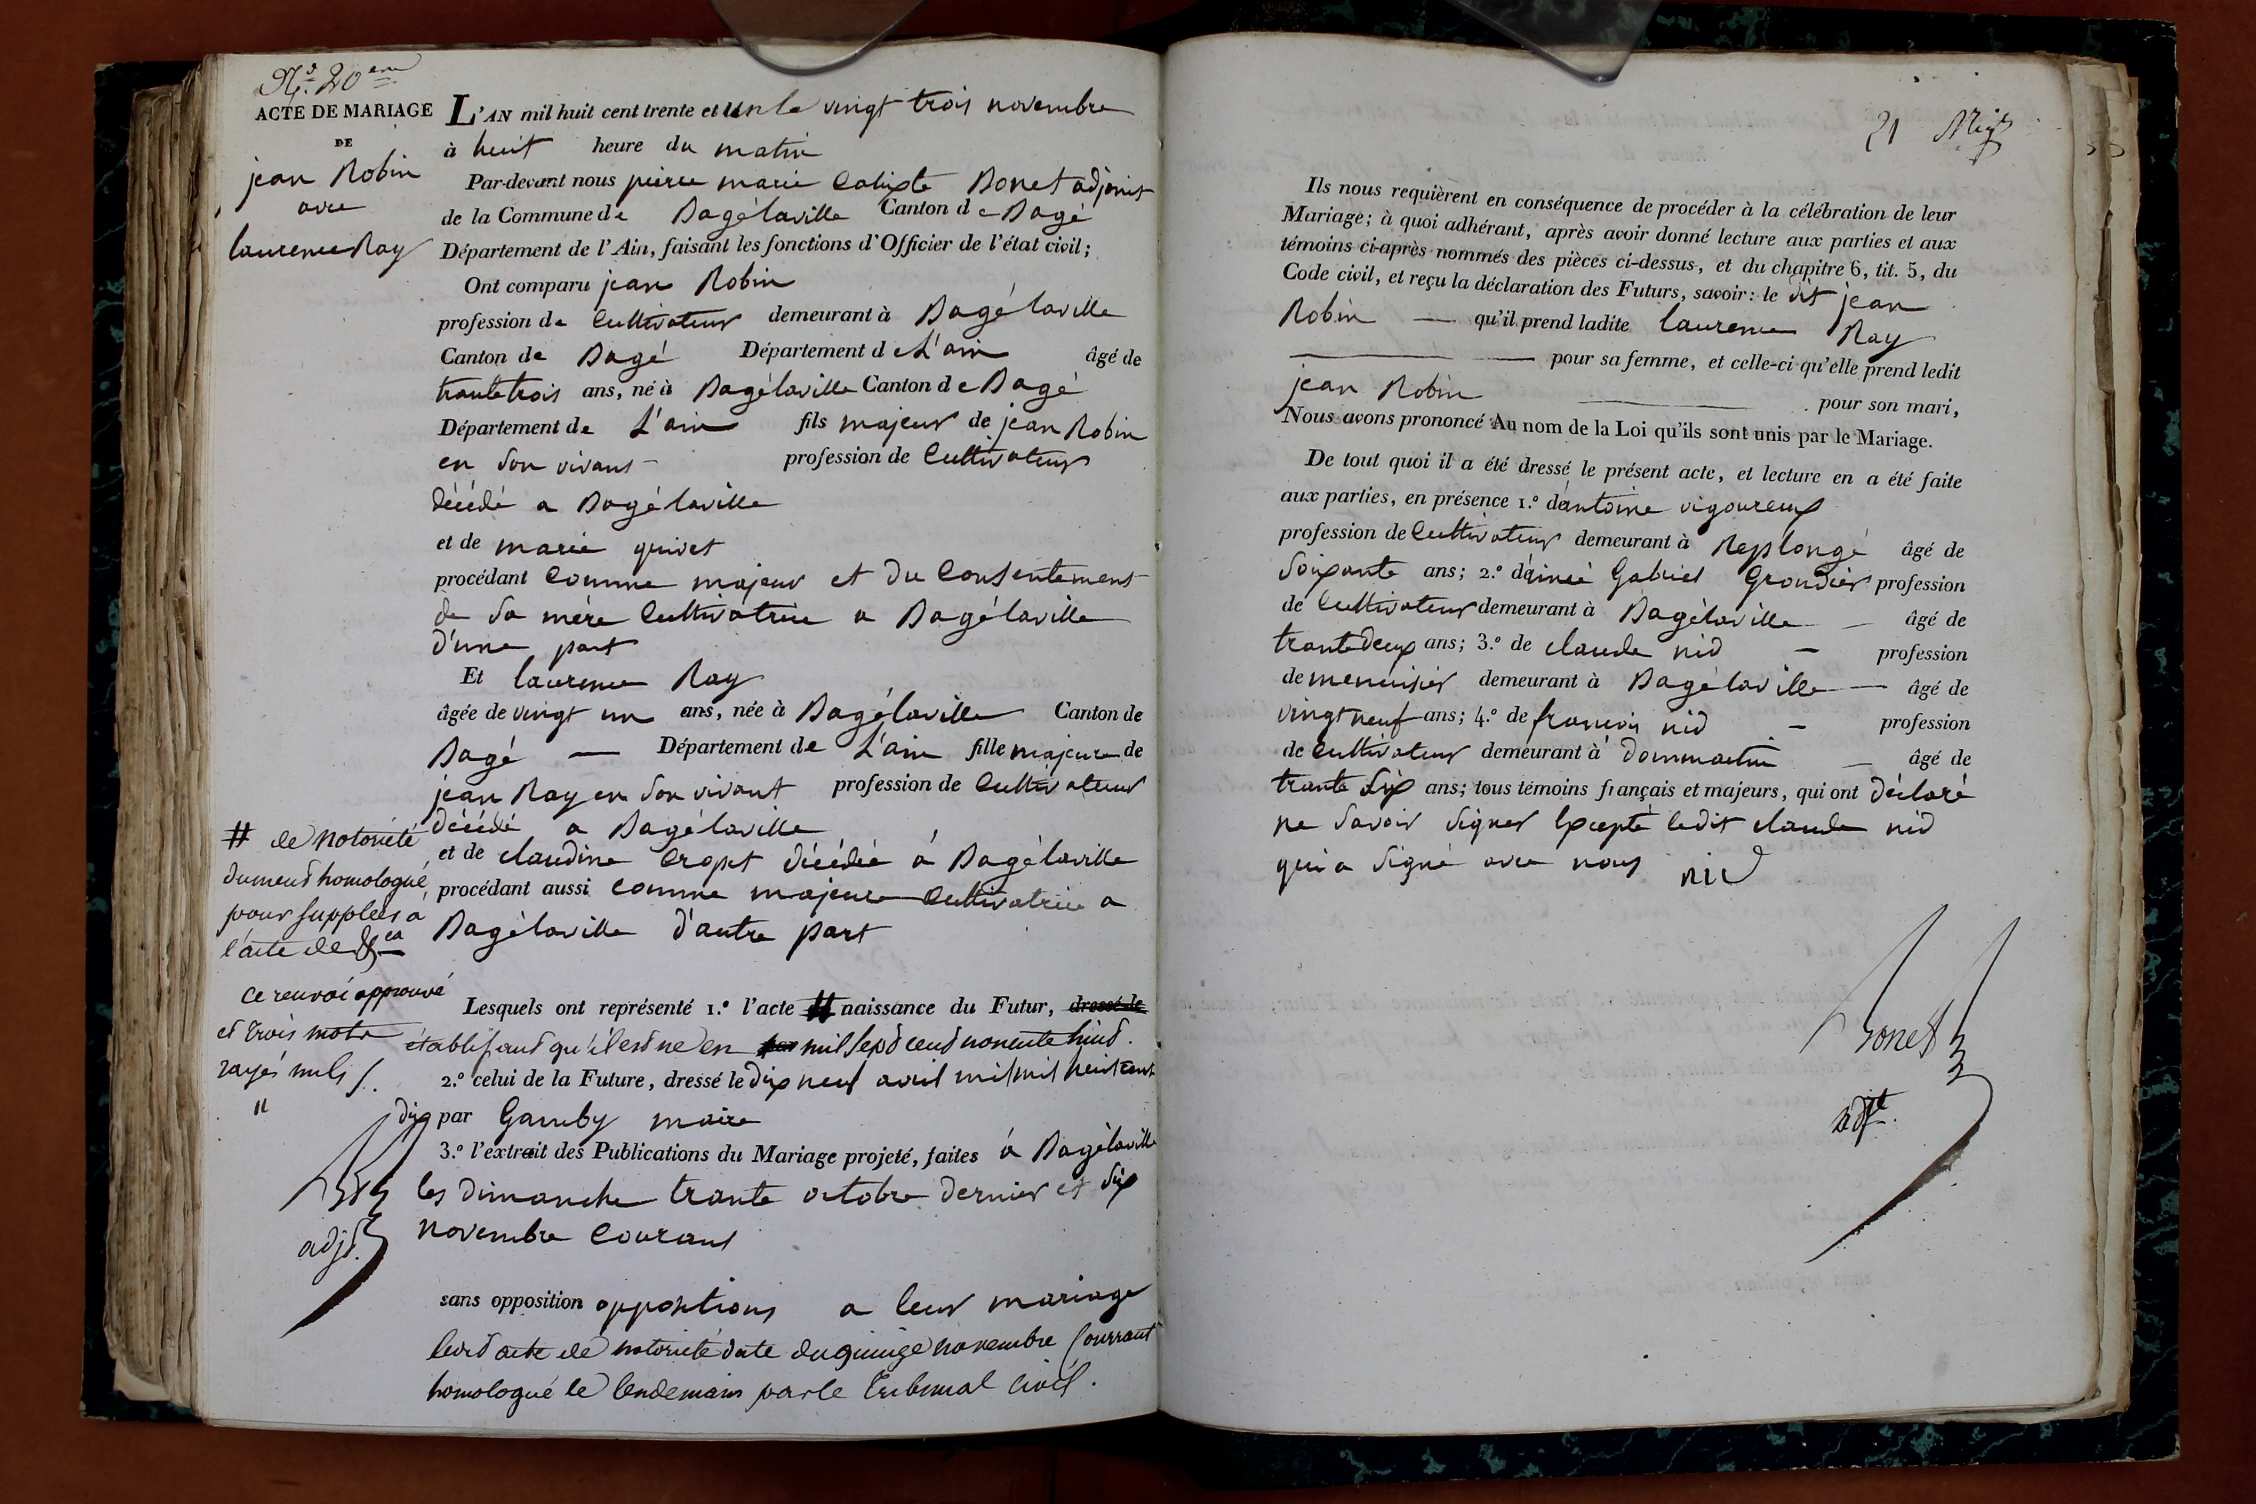 N.º 20 eme
ACTE DE MARIAGE
DE
jean Robin
avec
laurence Ray
L'AN mil huit cent trente et un le vingt trois novembre
à huit heure du matin
Par-devant nous pierre marie Calixte Bonet adjoint
de la Commune de Bagélaville Canton de Bagé
Département de l'Ain, faisant les fonctions d'Officier de l'état civil;
Ont comparu jean Robin
profession de Cultivateur demeurant à Bagélaville
Canton de Bagé Département de L'ain âgé de
trante trois ans, né à Bagélaville Canton de Bagé
Département de L'ain fils majeur de jean Robin
en son vivant profession de Cultivateur
décédé a Bagélaville
et de marie guivet
procédant Comme majeur et du Consentement
de sa mère Cultivatrice a Bagélaville
d'une part
Et laurence Ray
âgée de vingt un ans, née à Bagélaville Canton de
Bagé — Département de L'ain fille majeure de
jean Ray en son vivant profession de Cultivateur
décédé a Bagélaville
et de claudine Cropet décédée á Bagélaville
procédant aussi Comme majeure Cultivatrice a
Bagélaville d'autre part
# de Notoriété
dument homologué,
pour suppléer á
l'acte de &ca
ce renvoi approuvé
et trois mots
rayés nuls
adjt.
Lesquels ont représenté 1.º l'acte # naissance du Futur, dressé le
établissant qu'il est né en mil sept cent nonente huit.
2.º celui de la Future, dressé le dix neuf avril mil mil huit cent
dix par Gamby maire
3.º l'extrait des Publications du Mariage projeté, faites á Bagélaville
les dimanche trante octobre dernier et six
novembre Courant
sans opposition oppositions a leur mariage
acte de notoriété date du quinze novembre Courrant
homologué le lendemain par le Tribunal Civil.
21
Ils nous requièrent en conséquence de procéder à la célébration de leur
Mariage; à quoi adhérant, après avoir donné lecture aux parties et aux
témoins ci-après nommés des pièces ci-dessus, et du chapitre 6, tit. 5, du
Code civil, et reçu la déclaration des Futurs, savoir: le dit jean
Robin — qu'il prend ladite laurence Ray
— pour sa femme, et celle-ci qu'elle prend ledit
jean Robin — pour son mari,
Nous avons prononcé Au nom de la Loi qu'ils sont unis par le Mariage.
De tout quoi il a été dressé le présent acte, et lecture en a été faite
aux parties, en présence 1.º de antoine vigoureux
profession de Cultivateur demeurant à Replongé âgé de
soixante ans; 2.º de Gabriel Grondier profession
de Cultivateur demeurant à Bagélaville — âgé de
trante deux ans; 3.º de claude nid — profession
de menuisier demeurant à Bagélaville — âgé de
vingt neuf ans; 4.º de francois nid — profession
de Cultivateur demeurant à dommartin — âgé de
trante six ans; tous témoins français et majeurs, qui ont déclaré
ne savoir signer Excepté ledit claude nid
qui a signé avec nous nid
Bonet
adjt.